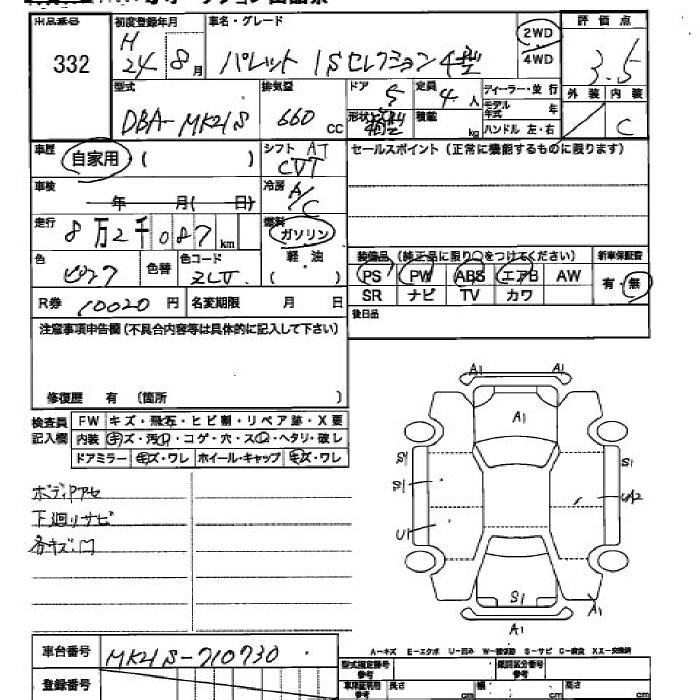 出品番号 332
初度登録年月 H 24 8月
車名・グレード パレット ISセレクション 4型
2WD
4WD
評価点 3.5
外装 内装 C
型式 DBA-MK21S
排気量 660 cc
ドア 5
定員 4人
形状
積載 kg
ディーラー・並行
モデル年式 年
ハンドル 左・右
車歴 自家用 ( )
シフト AT CVT
車検 年 月( 日)
冷房 A/C
走行 8万2千087km
燃料 ガソリン
軽油
( )
色
色替
色コードZLV
R券 10020円
名変期限 月 日
セールスポイント (正常に機能するものに限ります)
装備品 (純正品に限り○をつけてください)
新車保証書
PS PW ABS エアB AW
有・無
SR ナビ TV カワ
後日品
注意事項申告欄(不具合内容等は具体的に記入して下さい)
修復歴 有 (箇所 )
検査員記入欄
FW キズ・飛石・ヒビ割・リペア跡・X要
内装 キズ・汚・コゲ・穴・ス・ヘタリ・破レ
ドアミラー キズ・ワレ ホイール・キャップ キズ・ワレ
ボディアセ
下廻りサビ
各キズ凹
A1 A1
A1
S1 S1
S1
U1
S1
A1
A1
車台番号 MK21S-710730
登録番号
A-キズ E-エクボ U-凹み W-補修跡 S-サビ C-腐食 XX-交換済
型式指定番号 参考
類別区分番号 参考
車庫証明用 参考
長さ cm
幅 cm
高さ cm